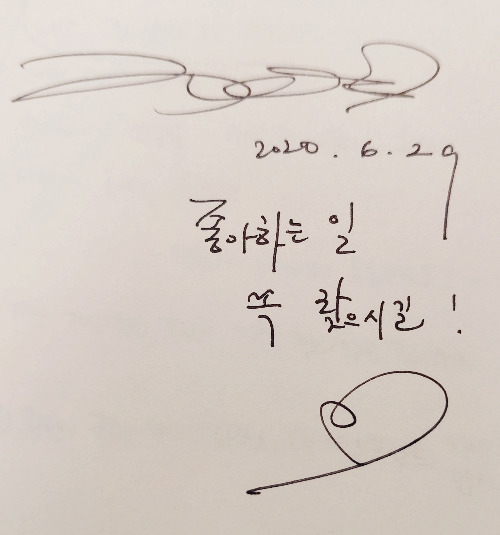 2020. 6. 29
좋아하는 일
꼭 찾으시길!